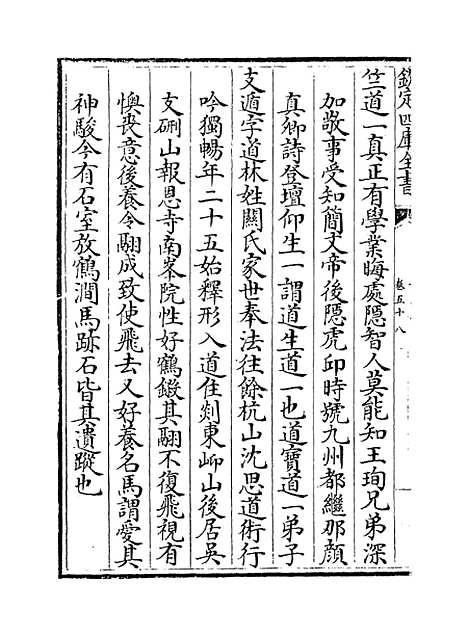 欽定四庫全書
卷五十八
竺道一真正有學業晦處隱智人莫能知王珣兄弟深
加敬事受知簡文帝後隱虎邱時號九州都維那顔
真卿詩登壇仰生一謂道生道一也道寶道一弟子
支遁字道林姓關氏家世奉法往餘杭山沈思道術行
吟獨暢年二十五始釋形入道住剡東岇山後居吳
支硎山報恩寺南峯院性好鶴鎩其翮不復飛視有
懊喪意後養令翮成致使飛去又好養名馬謂愛其
神駿今有石室放鶴澗馬跡石皆其遺蹤也